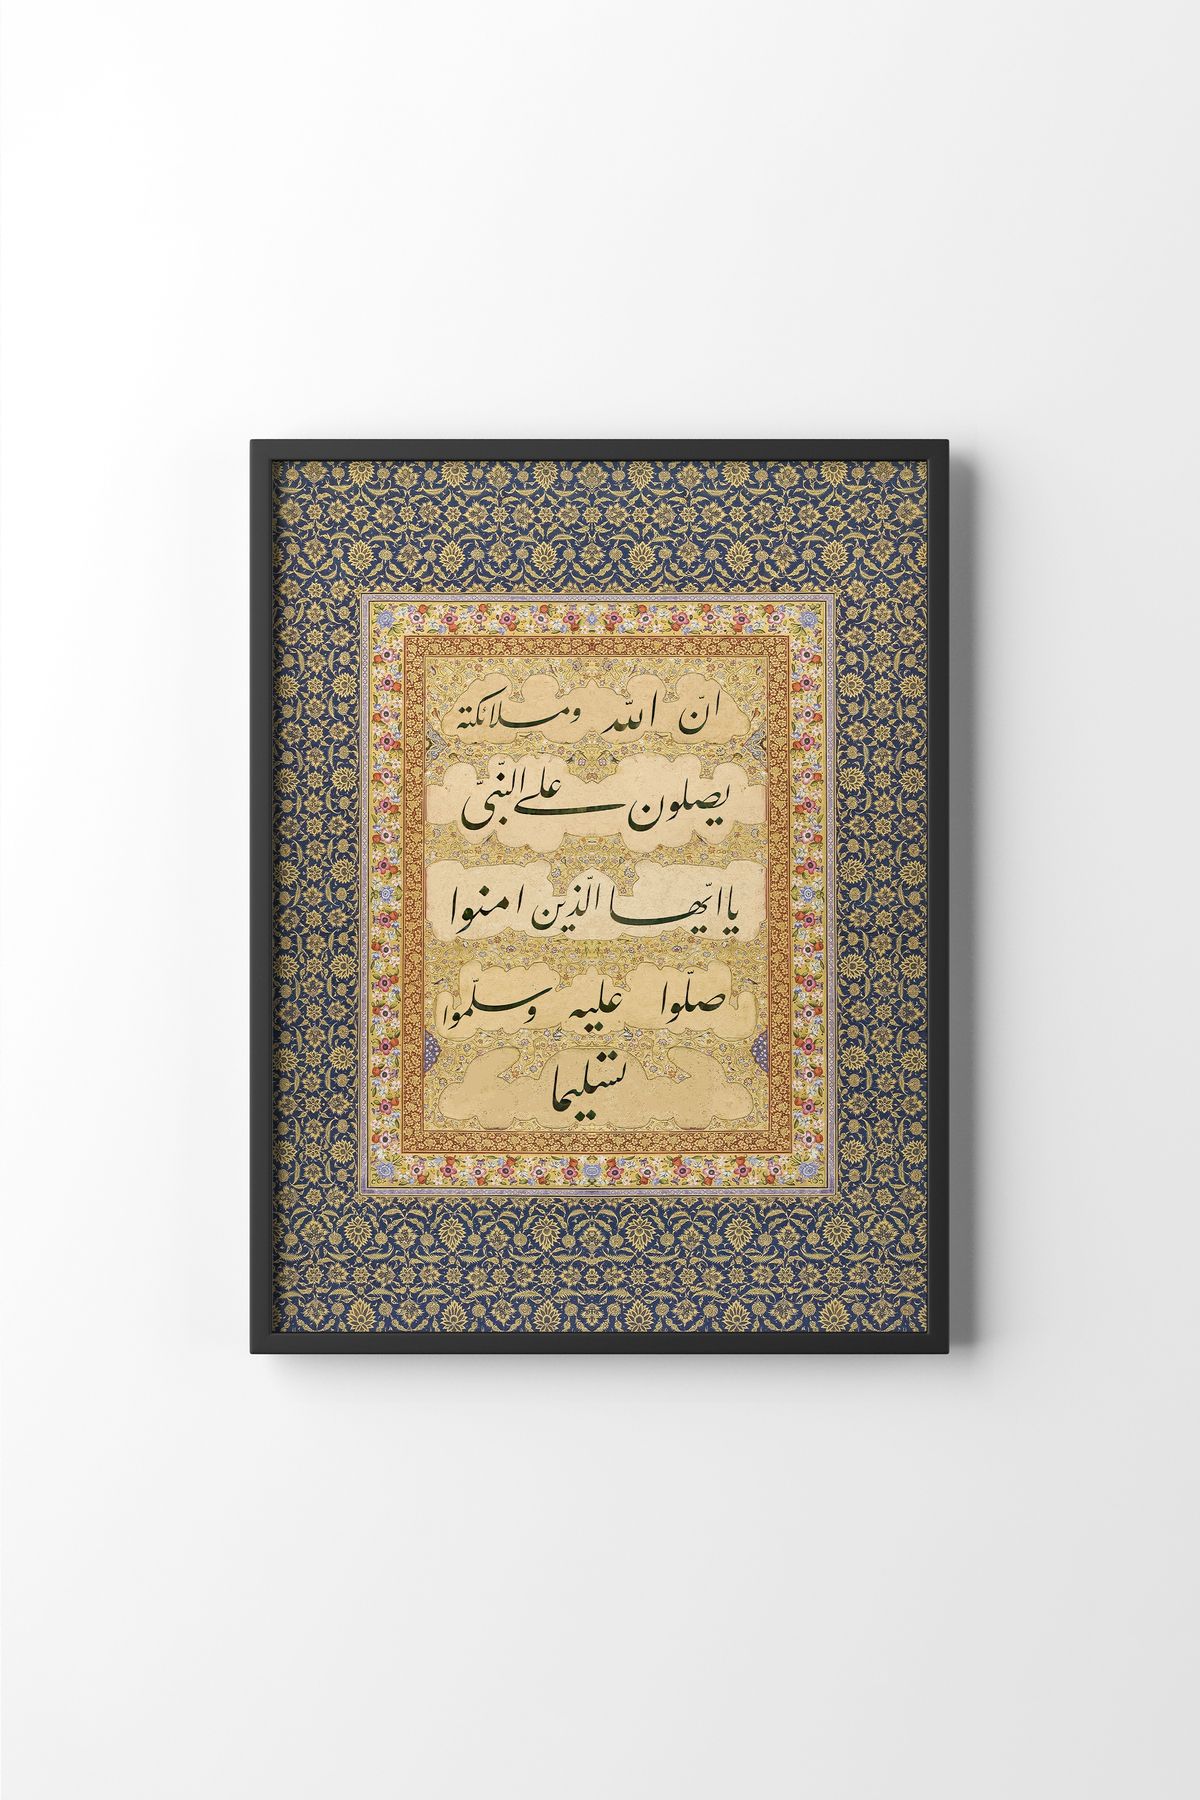 انّ اللّه وملائكته
يصلون على النّبىّ
يا ايّها الّذين امنوا
صلّوا عليه وسلّموا
تسليما